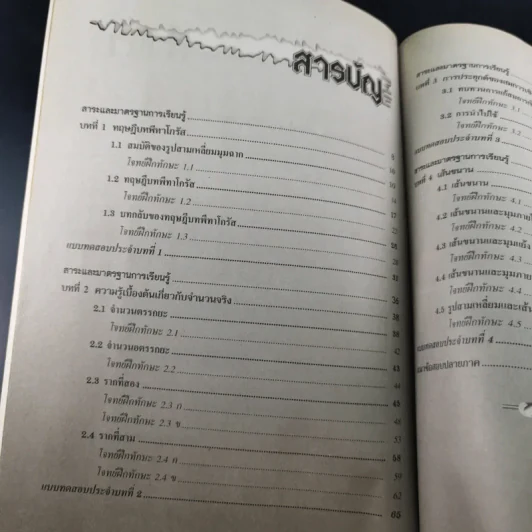 สารบัญ
สาระและมาตรฐานการเรียนรู้
บทที่ 1 ทฤษฎีบทพีทาโกรัส
1.1 สมบัติของรูปสามเหลี่ยมมุมฉาก
โจทย์ฝึกทักษะ 1.1
1.2 ทฤษฎีบทพีทาโกรัส
โจทย์ฝึกทักษะ 1.2
1.3 บทกลับของทฤษฎีบทพีทาโกรัส
โจทย์ฝึกทักษะ 1.3
แบบทดสอบประจำบทที่ 1
สาระและมาตรฐานการเรียนรู้
บทที่ 2 ความรู้เบื้องต้นเกี่ยวกับจำนวนจริง
2.1 จำนวนตรรกยะ
โจทย์ฝึกทักษะ 2.1
2.2 จำนวนอตรรกยะ 42
โจทย์ฝึกทักษะ 2.2 44
2.3 รากที่สอง
โจทย์ฝึกทักษะ 2.3 ก
โจทย์ฝึกทักษะ 2.3 ข 53
2.4 รากที่สาม
โจทย์ฝึกทักษะ 2.4 ก 59
โจทย์ฝึกทักษะ 2.4 ข 62
แบบทดสอบประจำบทที่ 2 65
สาระและมาตรฐานการเรียนรู้
บทที่ 3 การประยุกต์ของ
3.1
โจทย์ฝึกทักษะ 3.1
3.2 การนำไปใช้
โจทย์ฝึกทักษะ 3.2
แบบทดสอบประจำบทที่ 3
สาระและมาตรฐานการเรียนรู้
บทที่ 4 เส้นขนาน
4.1 เส้นขนาน
โจทย์ฝึกทักษะ 4.1
4.2 เส้นขนานและมุมภายใ
โจทย์ฝึกทักษะ 4.2
4.3 เส้นขนานและมุมแย้ง
โจทย์ฝึกทักษะ 4.3
4.4 เส้นขนานและมุมภาย
โจทย์ฝึกทักษะ 4.4
4.5 รูปสามเหลี่ยมและเส้น
โจทย์ฝึกทักษะ 4.5
แบบทดสอบประจำบทที่ 4